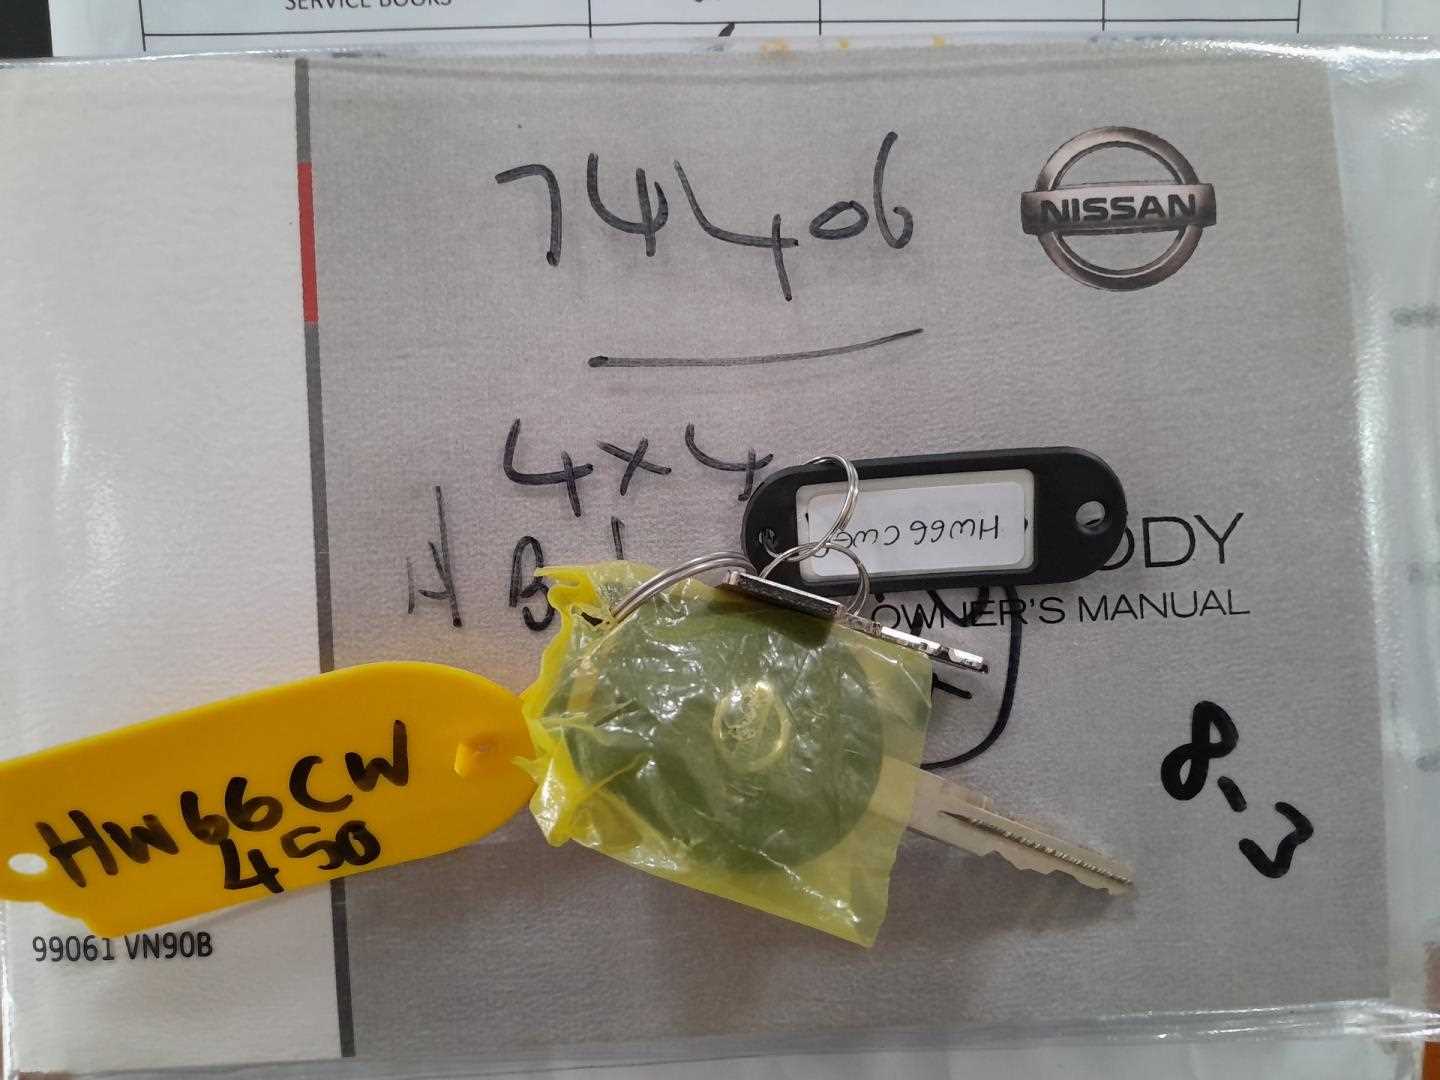 SERVICE BOOKS
74406
NISSAN
4x4
H B
HW66CW
ODY
OWNER'S MANUAL
8.3
HW66CW
450
99061 VN90B